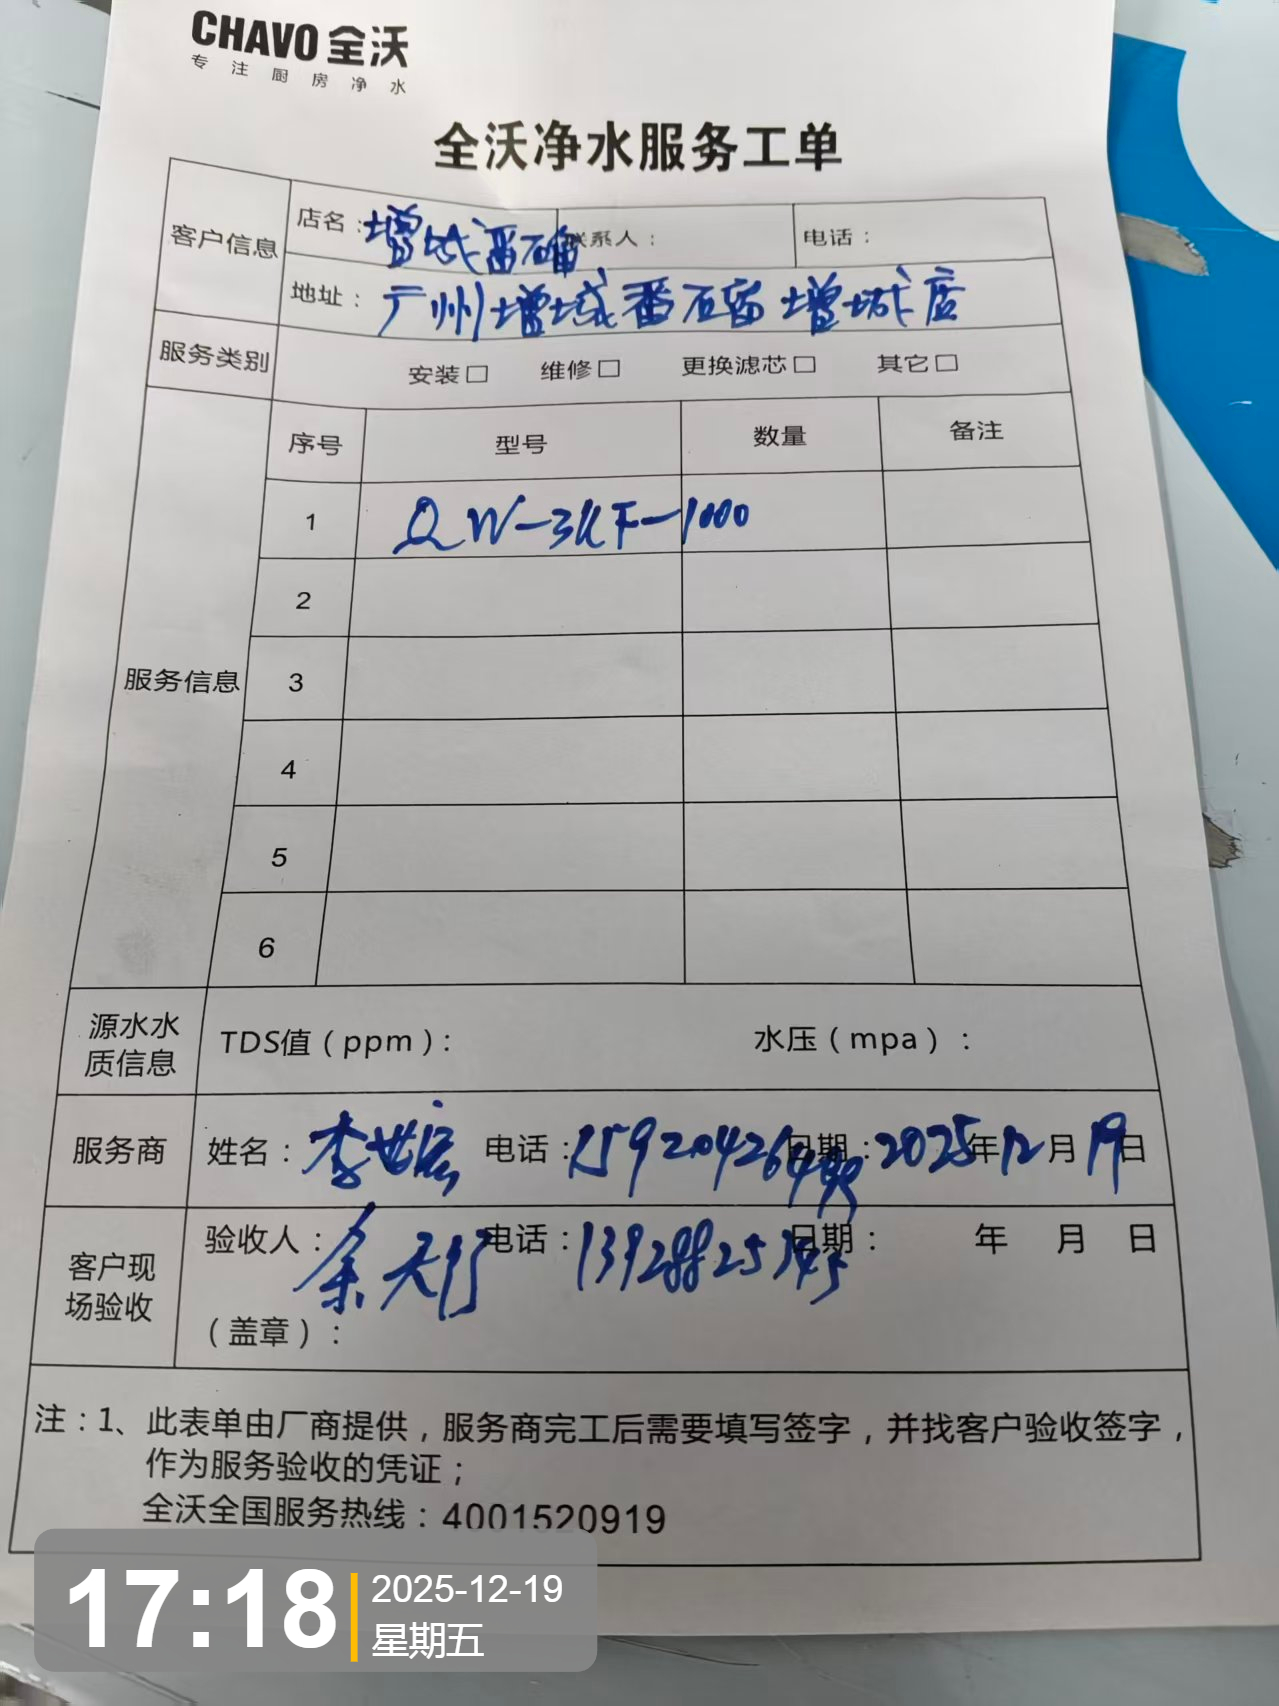 CHAVO 全沃
专注厨房净水
全沃净水服务工单
客户信息
店名：增城番石榴
联系人：
电话：
地址：广州增城番石榴增城店
服务类别
安装□ 维修□ 更换滤芯□ 其它□
服务信息
序号 型号 数量 备注
1 QW-3KF-1000
2
3
4
5
6
源水水质信息
TDS值（ppm）： 水压（mpa）：
服务商
姓名：李世宏 电话： 日期：2025年12月19日
客户现场验收
验收人：余天行 电话： 日期： 年 月 日
（盖章）：
注：1、此表单由厂商提供，服务商完工后需要填写签字，并找客户验收签字，
作为服务验收的凭证；
全沃全国服务热线：4001520919
17:18
2025-12-19
星期五